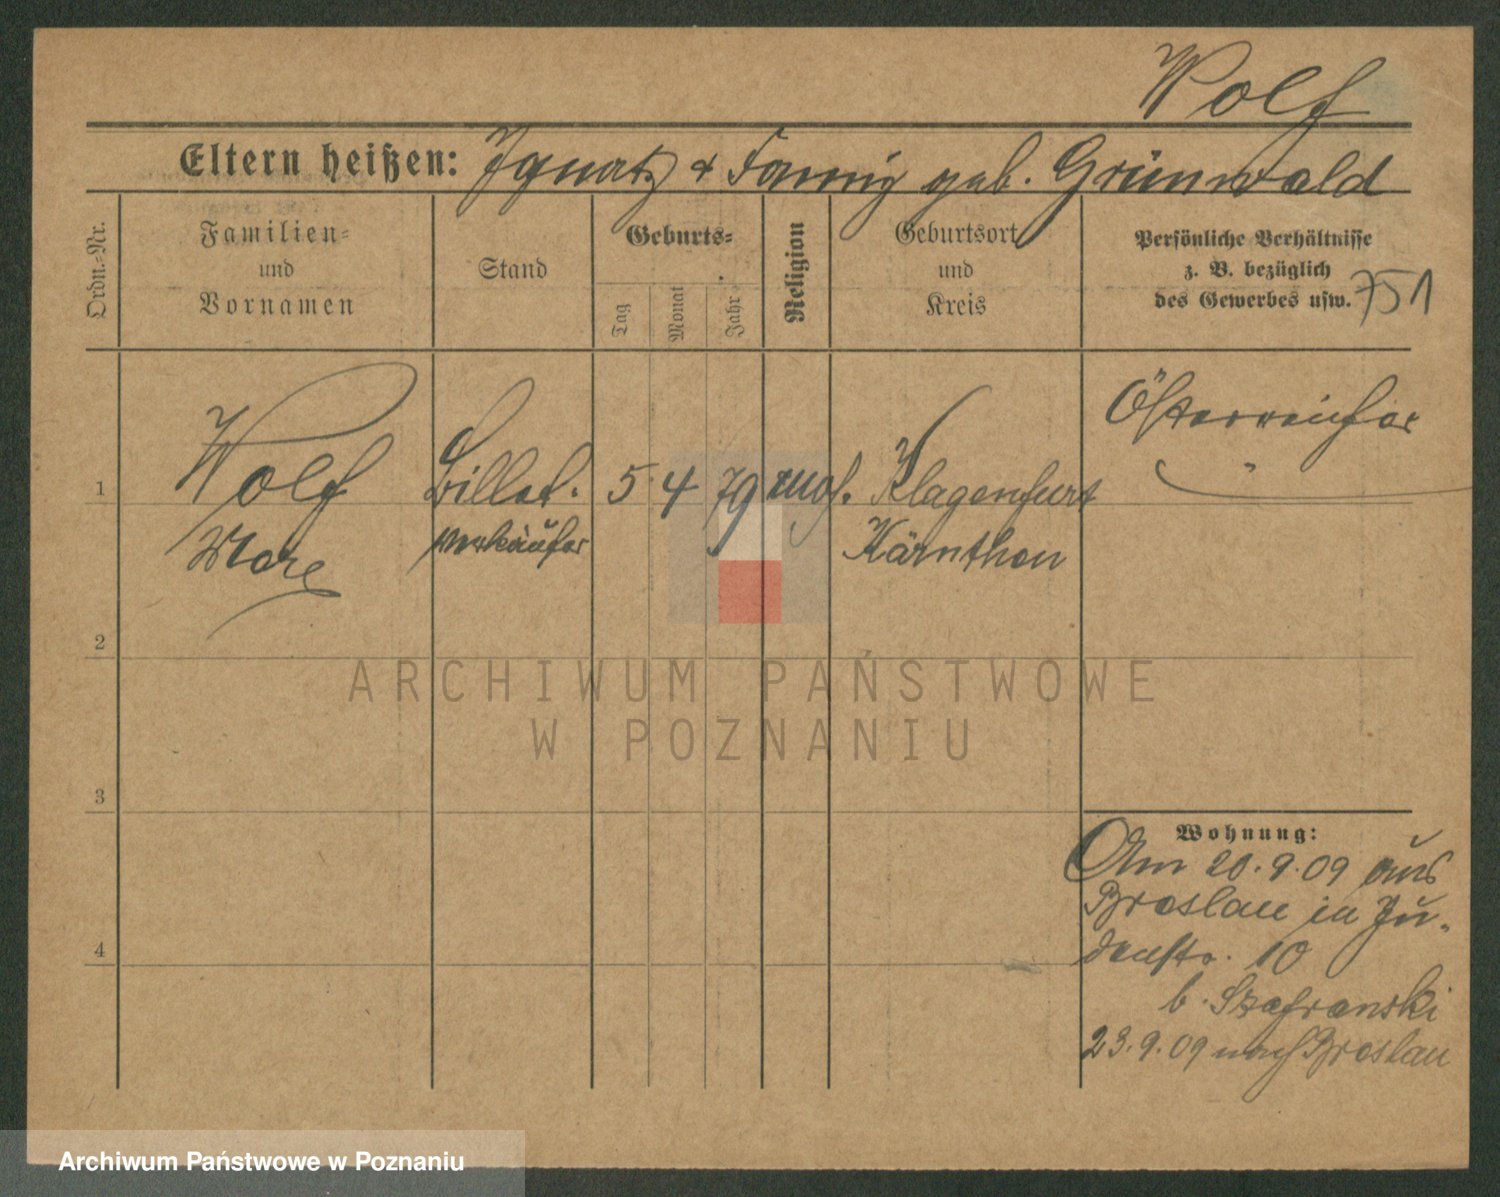 Wolf
Eltern heißen: Ignatz & Fanny geb. Grünwald
Ordn.-Nr.
Familien-
und
Vornamen
Stand
Geburts-
Tag
Monat
Jahr
Religion
Geburtsort
und
Kreis
Persönliche Verhältnisse
z. B. bezüglich
des Gewerbes usw.
751
Österreicher
1
Wolf
Billet.
5
4
79
mos.
Klagenfurt
verkäufer
Kärnthen
2
ARCHIWUM PAŃSTWOWE
W POZNANIU
3
Wohnung:
Am 20.9.09 aus
Breslau in Ju-
denstr. 10
4
b. Szafranski
23.9.09 nach Breslau
Archiwum Państwowe w Poznaniu